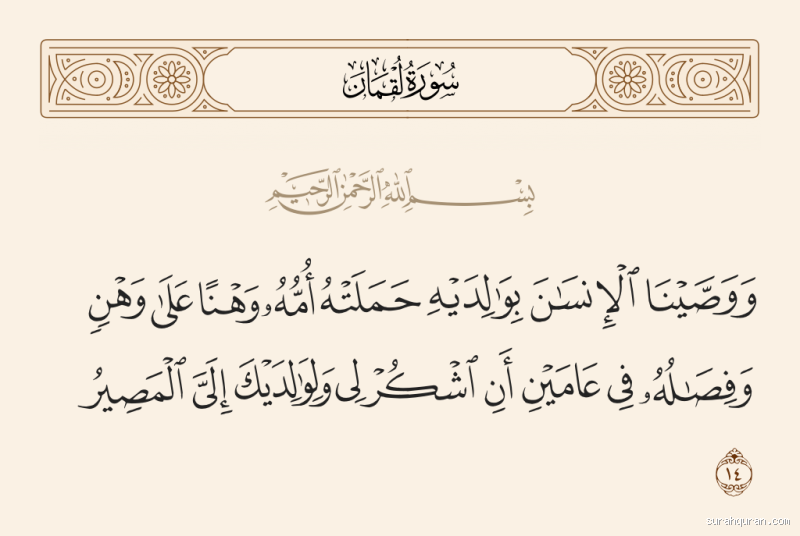 سُورَةُ لُقْمَانَ
بِسْمِ ٱللَّهِ ٱلرَّحْمَٰنِ ٱلرَّحِيمِ
وَوَصَّيْنَا ٱلْإِنسَٰنَ بِوَٰلِدَيْهِ حَمَلَتْهُ أُمُّهُۥ وَهْنًا عَلَىٰ وَهْنٍ
وَفِصَٰلُهُۥ فِى عَامَيْنِ أَنِ ٱشْكُرْ لِى وَلِوَٰلِدَيْكَ إِلَىَّ ٱلْمَصِيرُ
١٤
surahquran.com